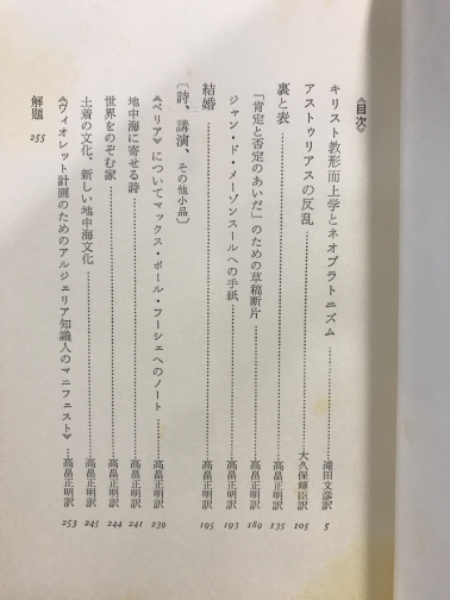 《目次》
キリスト教形而上学とネオプラトニズム……滝田文彦訳 5
アストゥリアスの反乱……大久保輝臣訳 105
裏と表……高畠正明訳 135
「肯定と否定のあいだ」のための草稿断片……高畠正明訳 189
ジャン・ド・メーゾンスールへの手紙……高畠正明訳 193
結婚……高畠正明訳 195
〔詩、講演、その他小品〕
《ペリア》についてマックス・ポール・フーシェへのノート……高畠正明訳 239
地中海に寄せる詩……高畠正明訳 241
世界をのぞむ家……高畠正明訳 244
土着の文化、新しい地中海文化……高畠正明訳 245
《ヴィオレット計画のためのアルジェリア知識人のマニフェスト》……高畠正明訳 253
解題 255